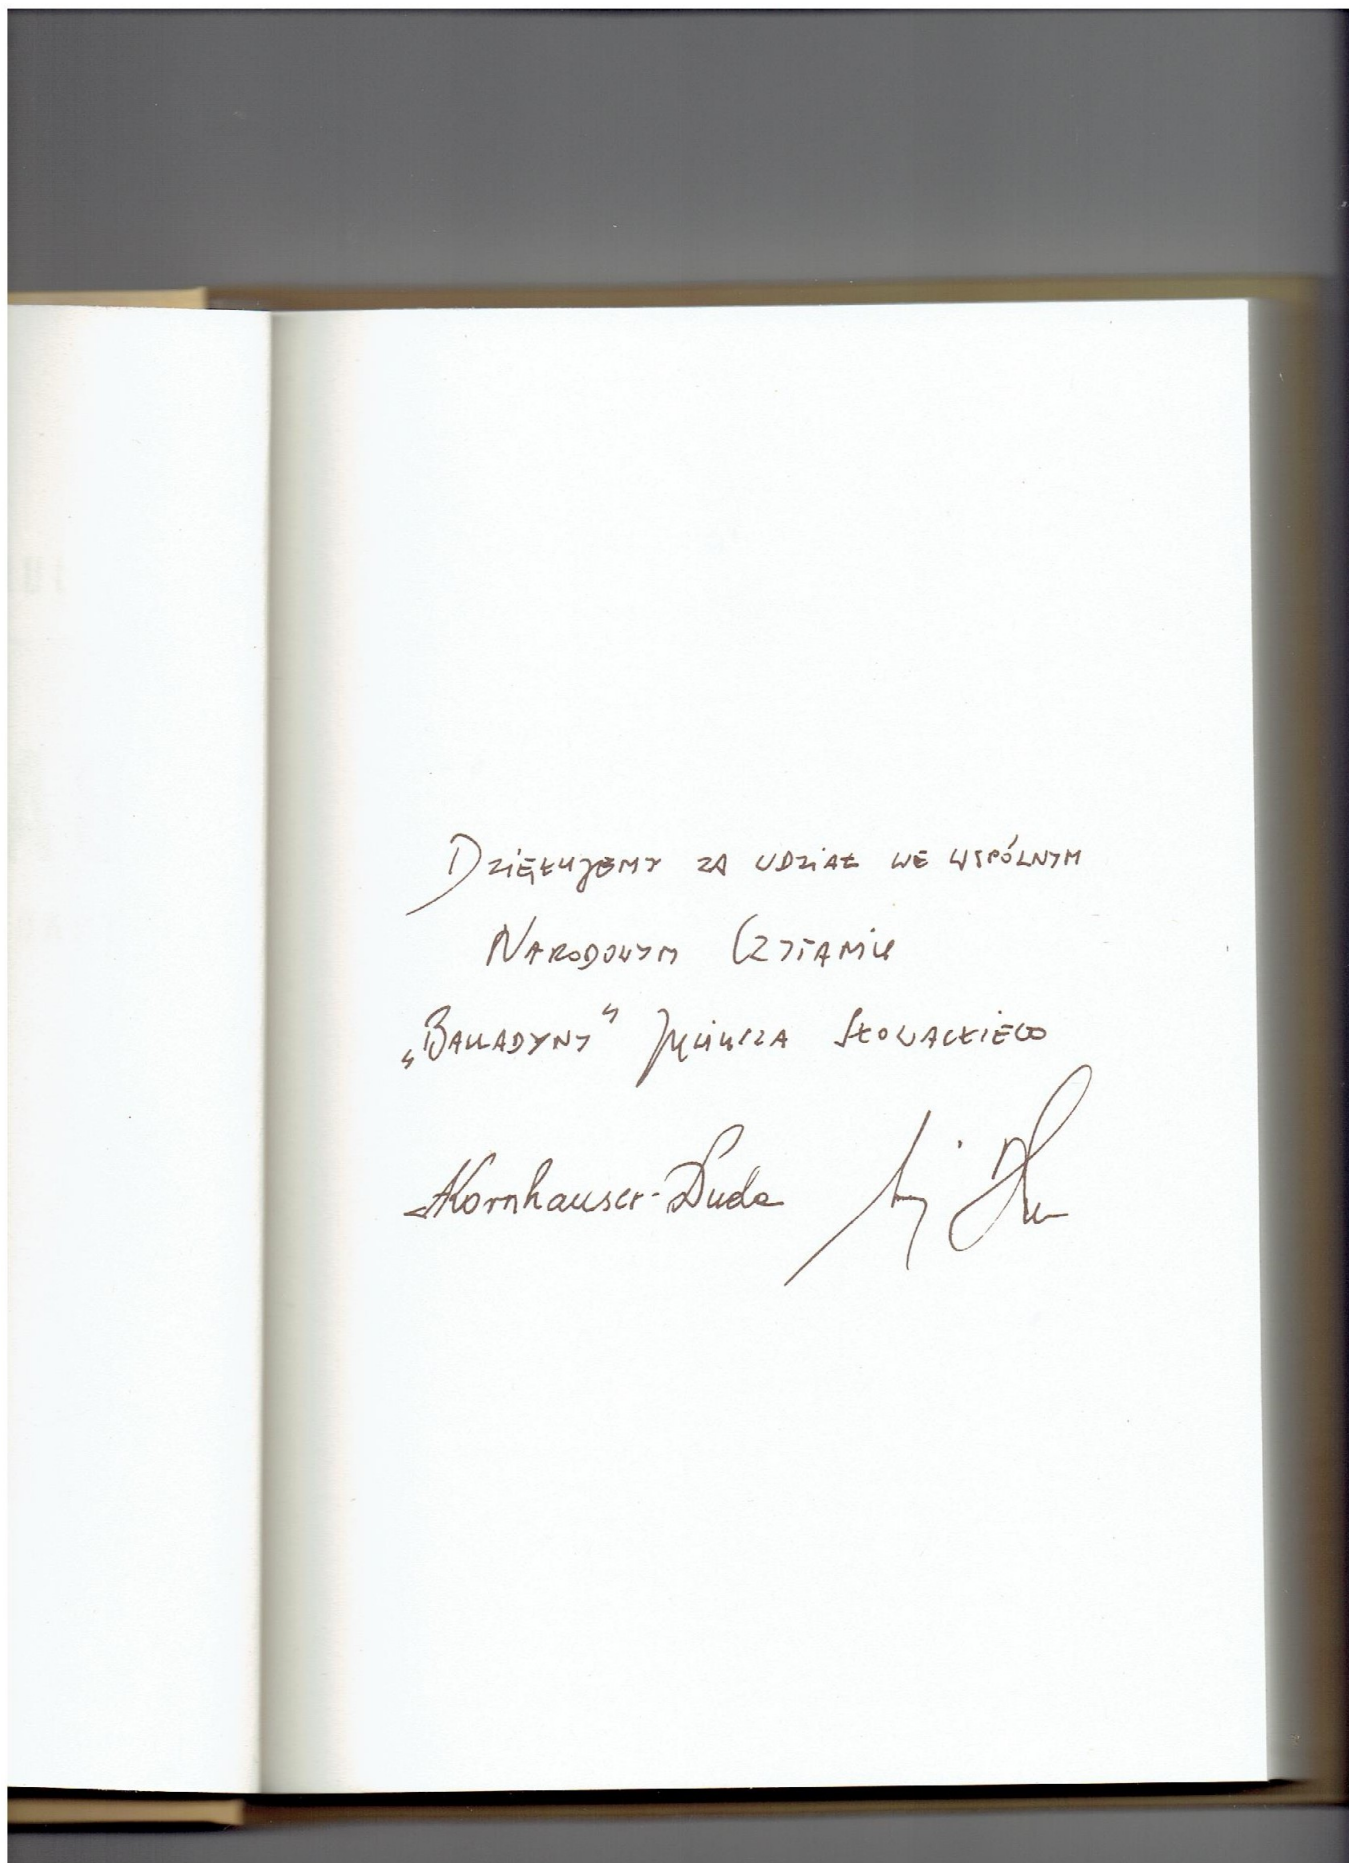 Dziękujemy za udział we wspólnym
Narodowym Czytaniu
„Balladyny" Juliusza Słowackiego
AKornhauser-Duda